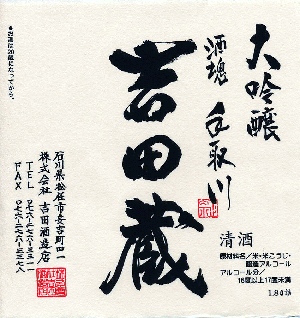 大吟醸
酒魂 手取川
吉田蔵
清酒
原材料名/米・米こうじ・
醸造アルコール
アルコール分/
16度以上17度未満
1.8ℓ詰
石川県松任市安吉町四一
株式会社 吉田酒造店
TEL 〇七六-二七六-三三一一
FAX 〇七六-二七六-三三七八
●お酒は20歳になってから。